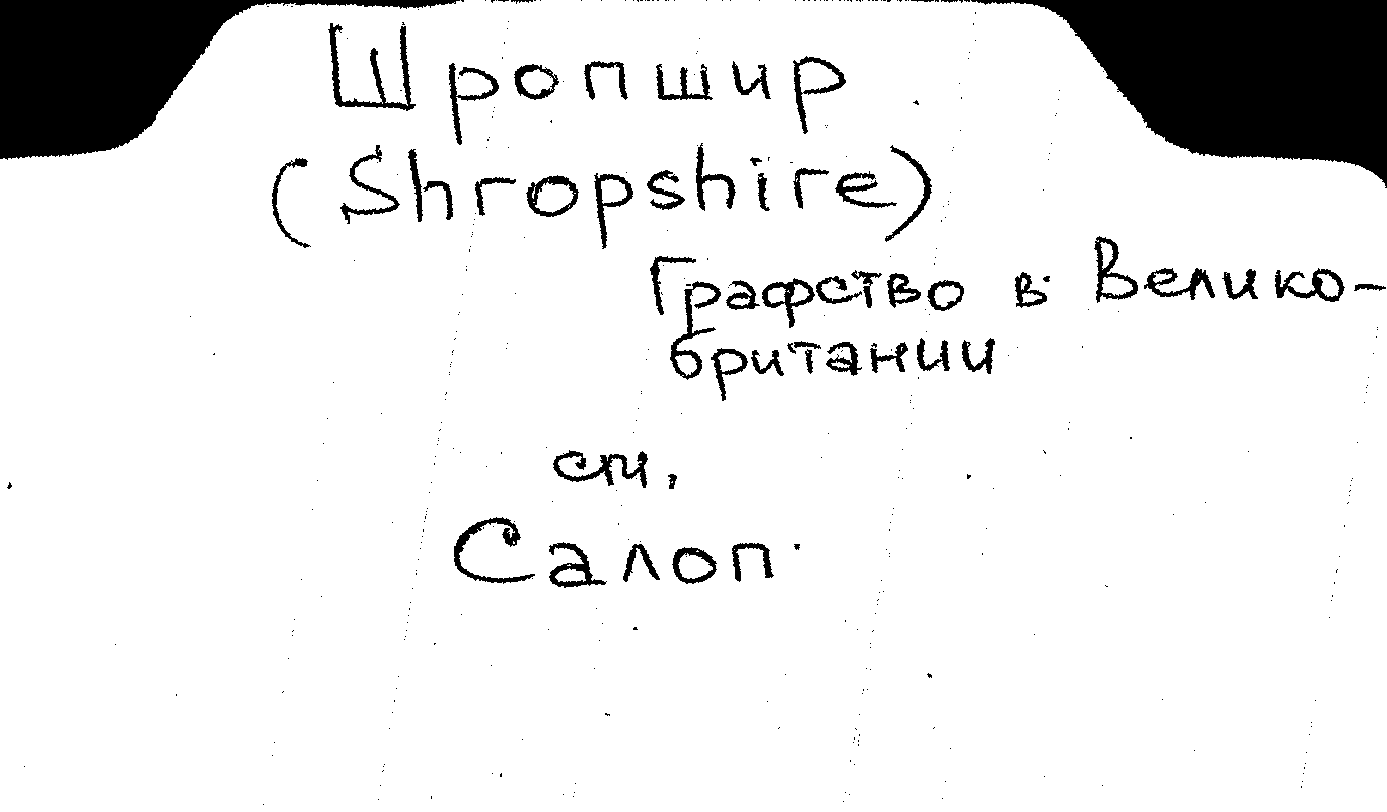 Шропшир
(Shropshire)
Графство в Велико-
британии
см.
Салоп